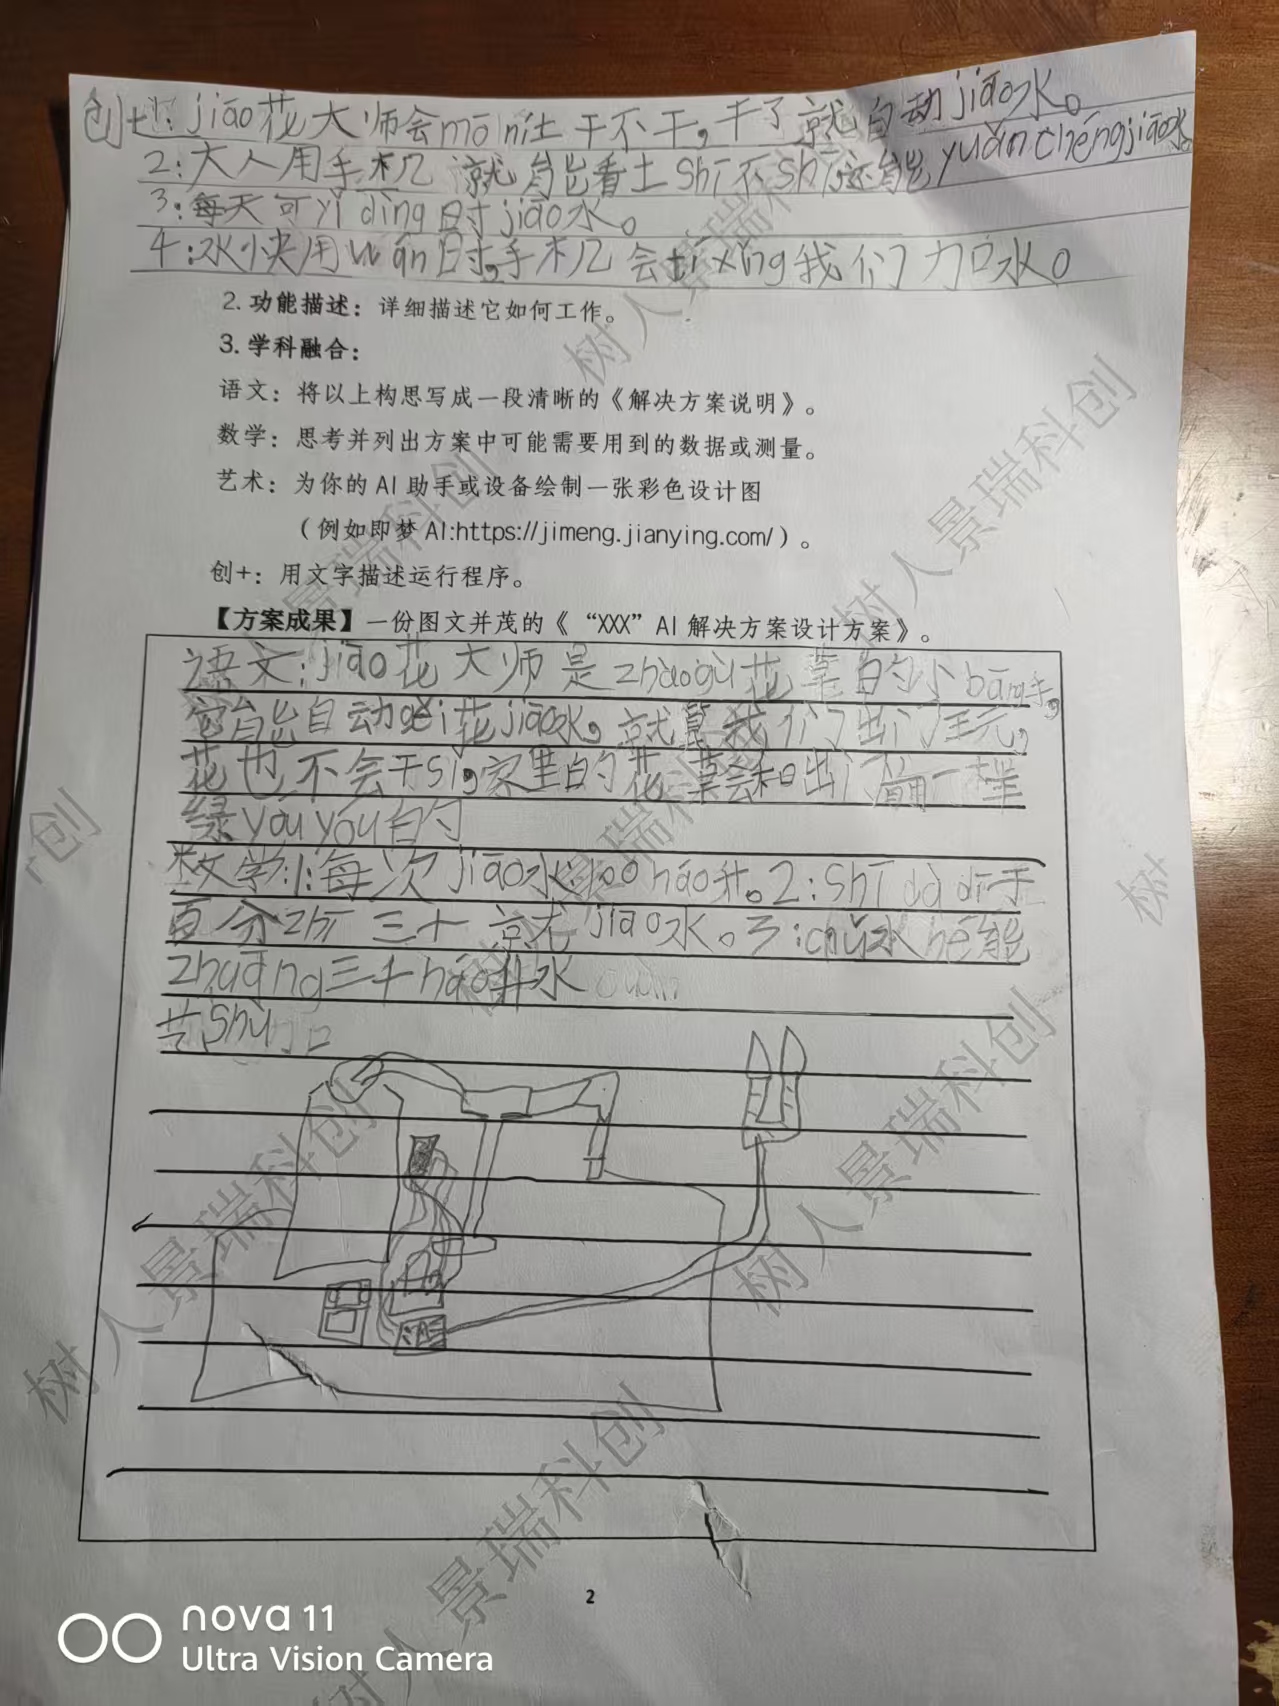 创+1: jiāo花大师会mō ní土干不干,干了就自动jiāo水。
2:大人用手机就能看土shī不shī,还能yuǎn chéng jiāo水
3:每天可yǐ dìng时jiāo水。
4:水快用wán时,手机会tí xǐng我们加水。
2. 功能描述：详细描述它如何工作。
3. 学科融合：
语文：将以上构思写成一段清晰的《解决方案说明》。
数学：思考并列出方案中可能需要用到的数据或测量。
艺术：为你的 AI 助手或设备绘制一张彩色设计图
（例如即梦 AI:https://jimeng.jianying.com/）。
创+：用文字描述运行程序。
【方案成果】一份图文并茂的《 “XXX” AI 解决方案设计方案》。
语文:jiāo花大师是zhào gù花草的小bāng手,
它能自动gěi花jiāo水,就算我们出门玩,
花也不会干sǐ,家里的花草会和出门前一样
绿yóu yóu的
数学:1:每次jiāo水100háo升。2:shī dù dī于
百分zhī三十就jiāo水。3:chǔ水hé能
zhuāng三千háo升水
艺shù
2
nova 11
Ultra Vision Camera
树人景瑞科创
树人景瑞科创
树人景瑞科创
树人景瑞科创